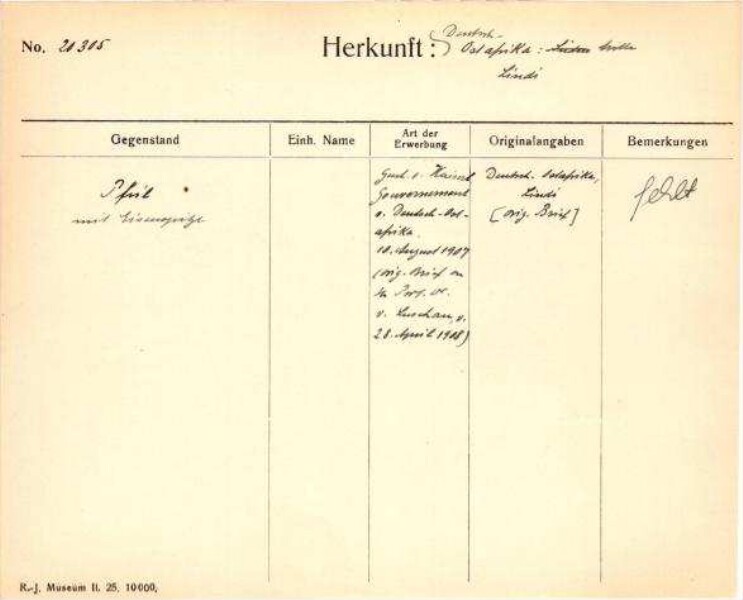 No. 20305
Herkunft: Deutsch-
Ostafrika:
Lindi
Gegenstand
Einh. Name
Art der
Erwerbung
Originalangaben
Bemerkungen
Pfeil
mit Eisenspitze
Gesch. v. Kaiserl.
Gouvernement
v. Deutsch-Ost-
afrika.
10. August 1907
(orig. Brief an
Prof. Dr.
v. Luschan, v.
28. April 1908)
Deutsch. Ostafrika,
Lindi
[orig. Brief]
fehlt
R.-J. Museum II. 25. 10000.